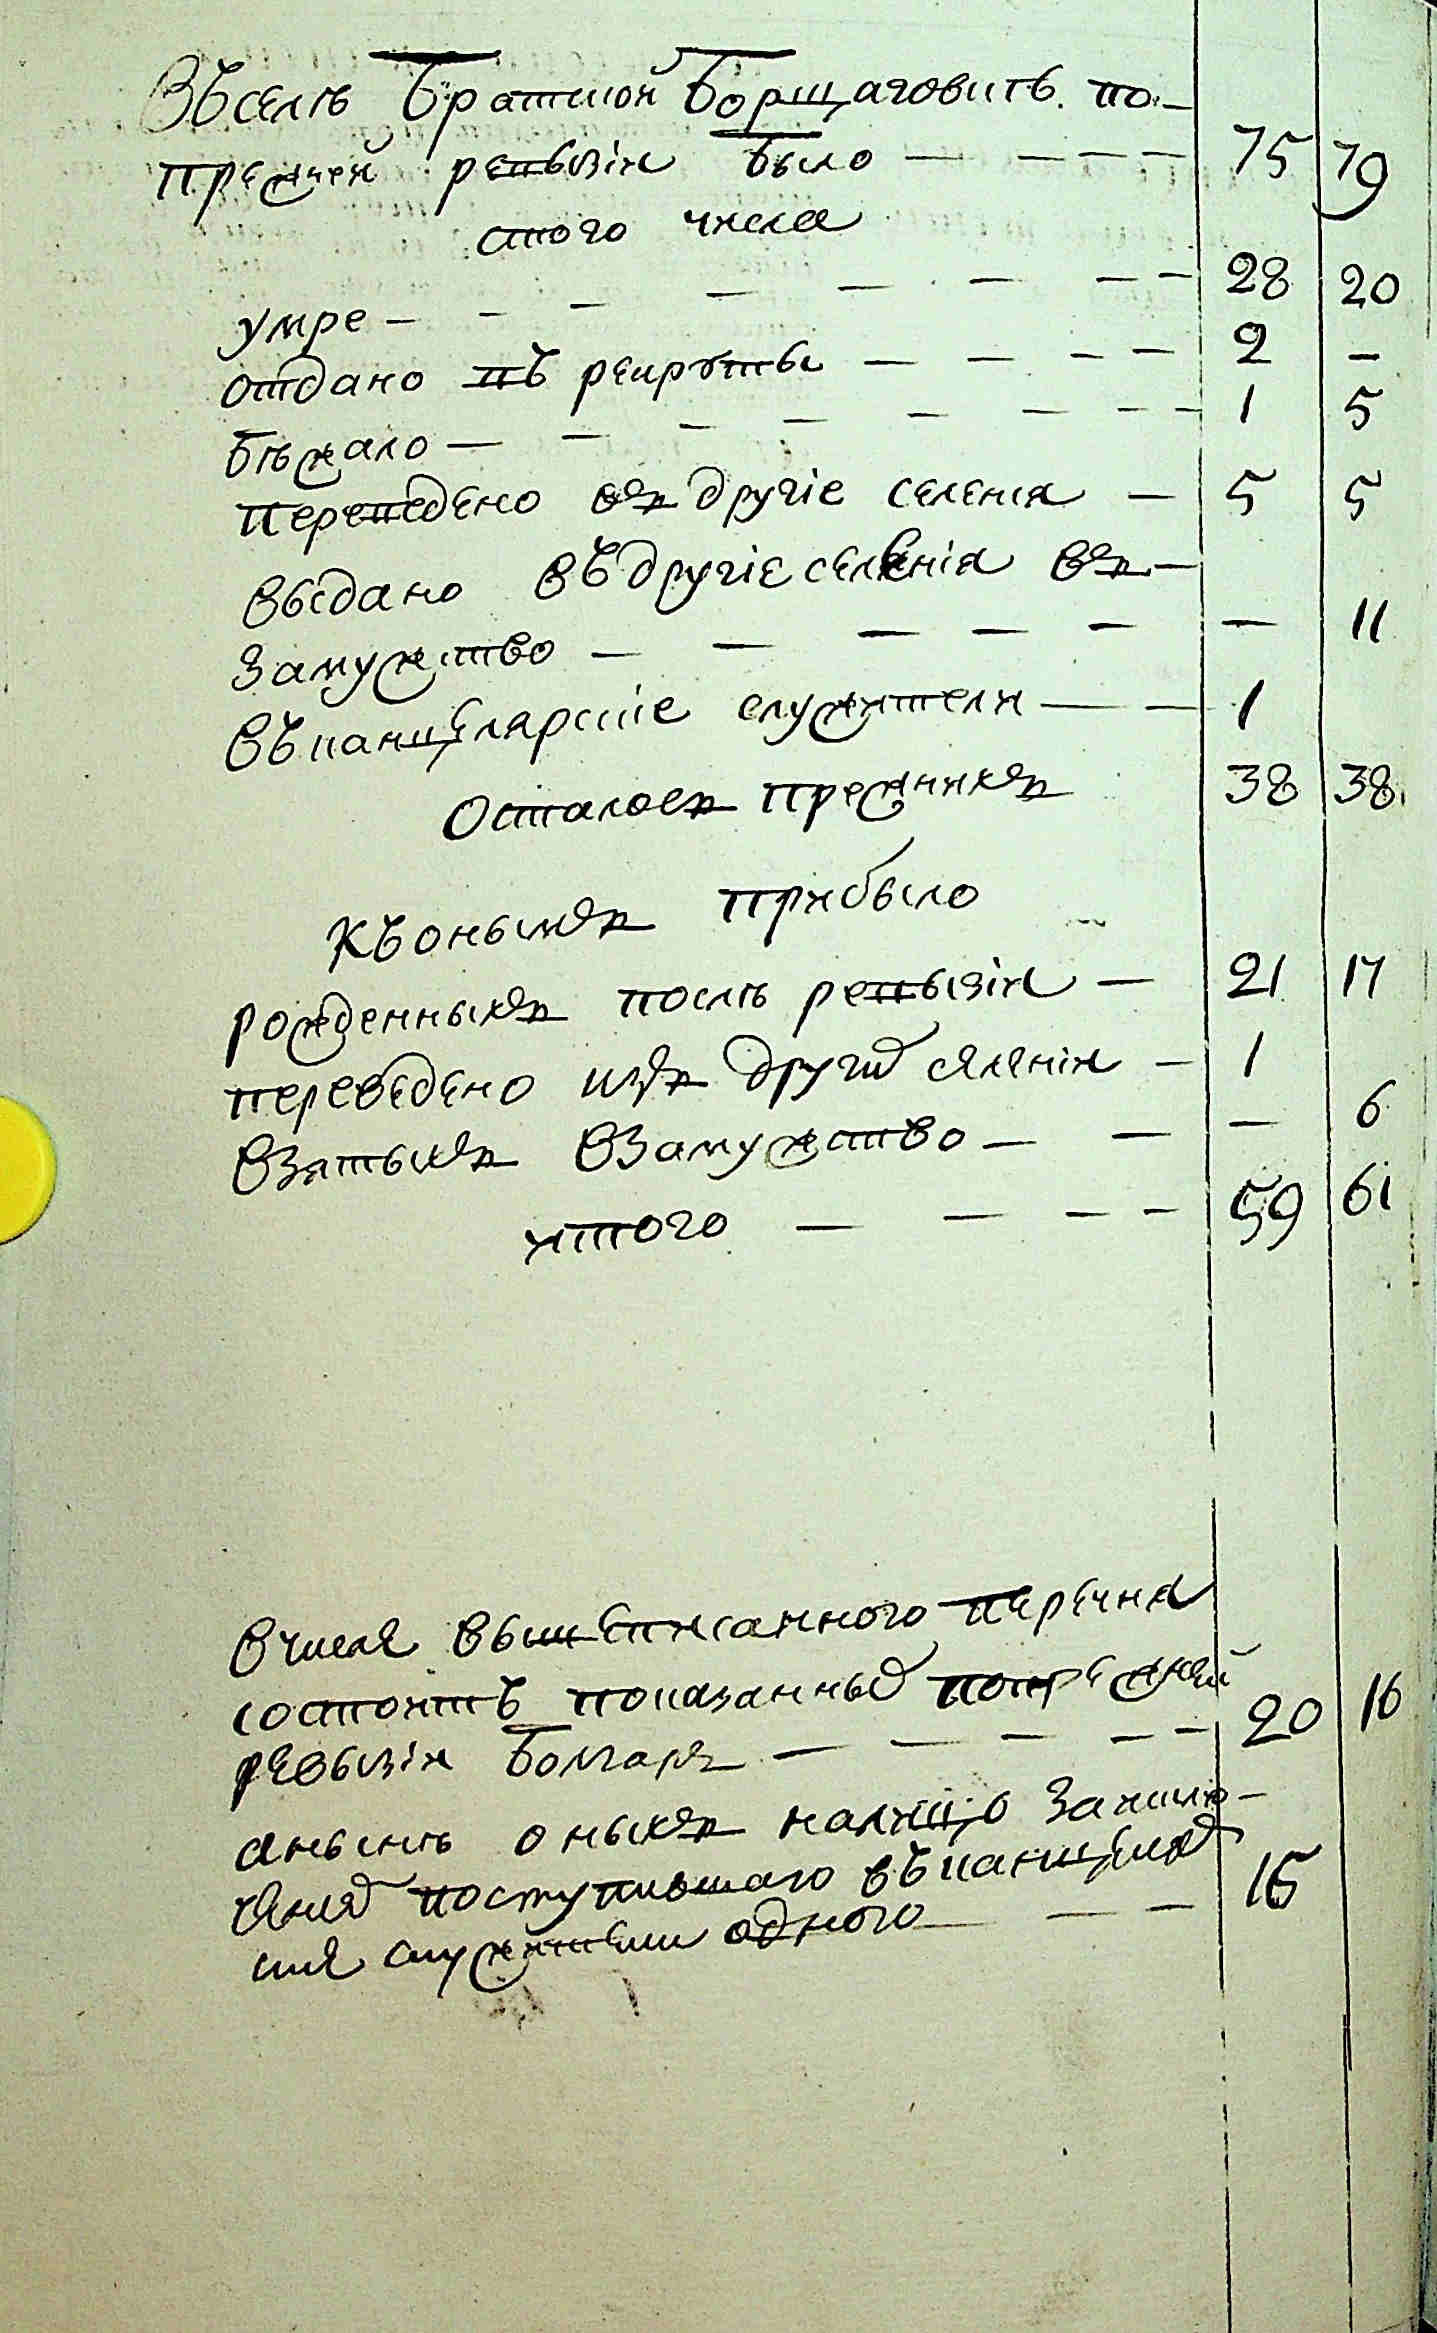 Въселѣ Братской Борщаговкѣ по-
прежней ревызіи было — — — — 75 79
стого числа
умре — — — — — — — — 28 20
отдано въ рекруты — — — — 2 —
бѣжало — — — — — — — — 1 5
переведено въ другіе селенія — 5 5
выдано въдругіе селенія въ —
замужство — — — — — — 11
въканцелярскіе служители — — 1
осталось прежнихъ 38 38
Къонымъ прибыло
рожденныхъ послѣ ревызіи — 21 17
переведено изъ другихъ селеніи — 1
взятыхъ взамужство — — — 6
итого — — — — 59 61
вчисле вышеписанного перечня
состоитъ показанныхъ попрежней
ревызіи болгаръ — — — — — 20 16
анынѣ оныхъ налицо заклю-
ченіемъ поступившаго въканцеляр
скіе служители одного — — — 15